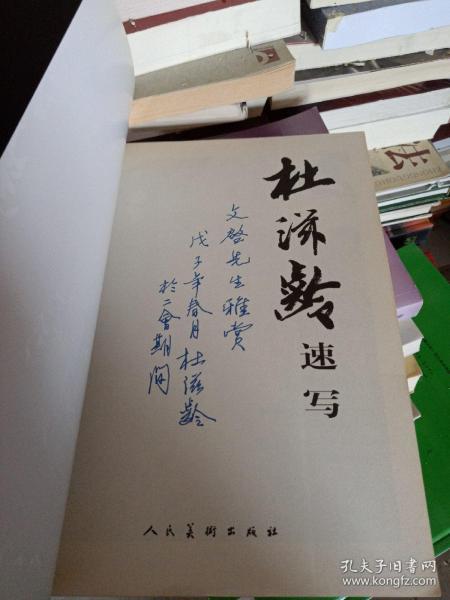 杜滋龄
速写
文启先生雅赏
戊子年春月 杜滋龄
於二會期间
人民美術出版社
孔夫子旧书网
www.kongfz.com